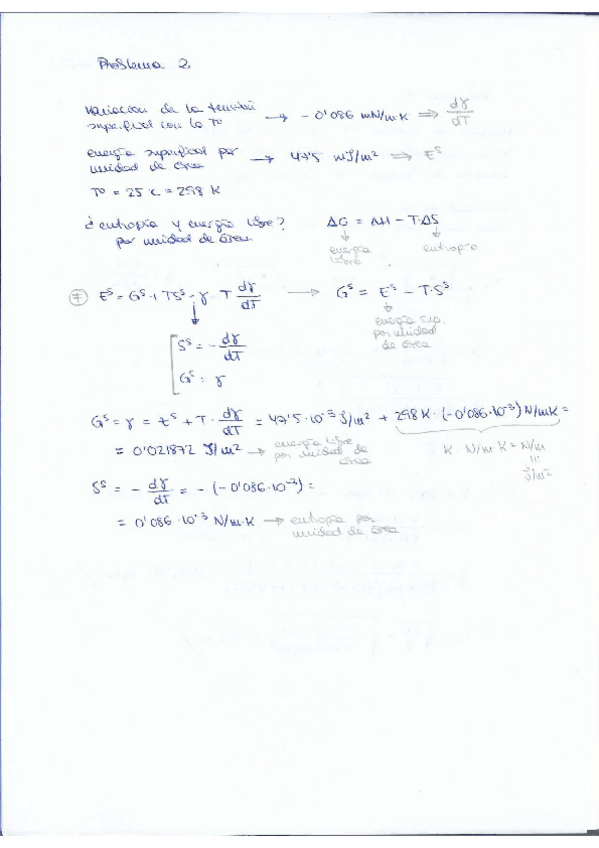 Problema 2.
variación de la tensión superficial con la Tª → - 0'086 mN/m·K ⇒ dγ/dT
energía superficial por unidad de área → 47'5 mJ/m² ⇒ E^s
Tª = 25 ℃ = 298 K
¿entropía y energía libre? por unidad de área
ΔG = ΔH - T·ΔS
energía libre
entropía
⑦ E^s = G^s + TS^s = γ T dγ/dT → G^s = E^s - T·S^s
energía sup. por unidad de área
S^s = - dγ/dT
G^s = γ
G^s = γ = E^s + T · dγ/dT = 47'5·10⁻³ J/m² + 298 K · (-0'086·10⁻³) N/mK =
= 0'021872 J/m² → energía libre por unidad de área
K · N/m·K = N/m
=
J/m²
S^s = - dγ/dT = - (-0'086·10⁻³) =
= 0'086·10⁻³ N/m·K → entropía por unidad de área